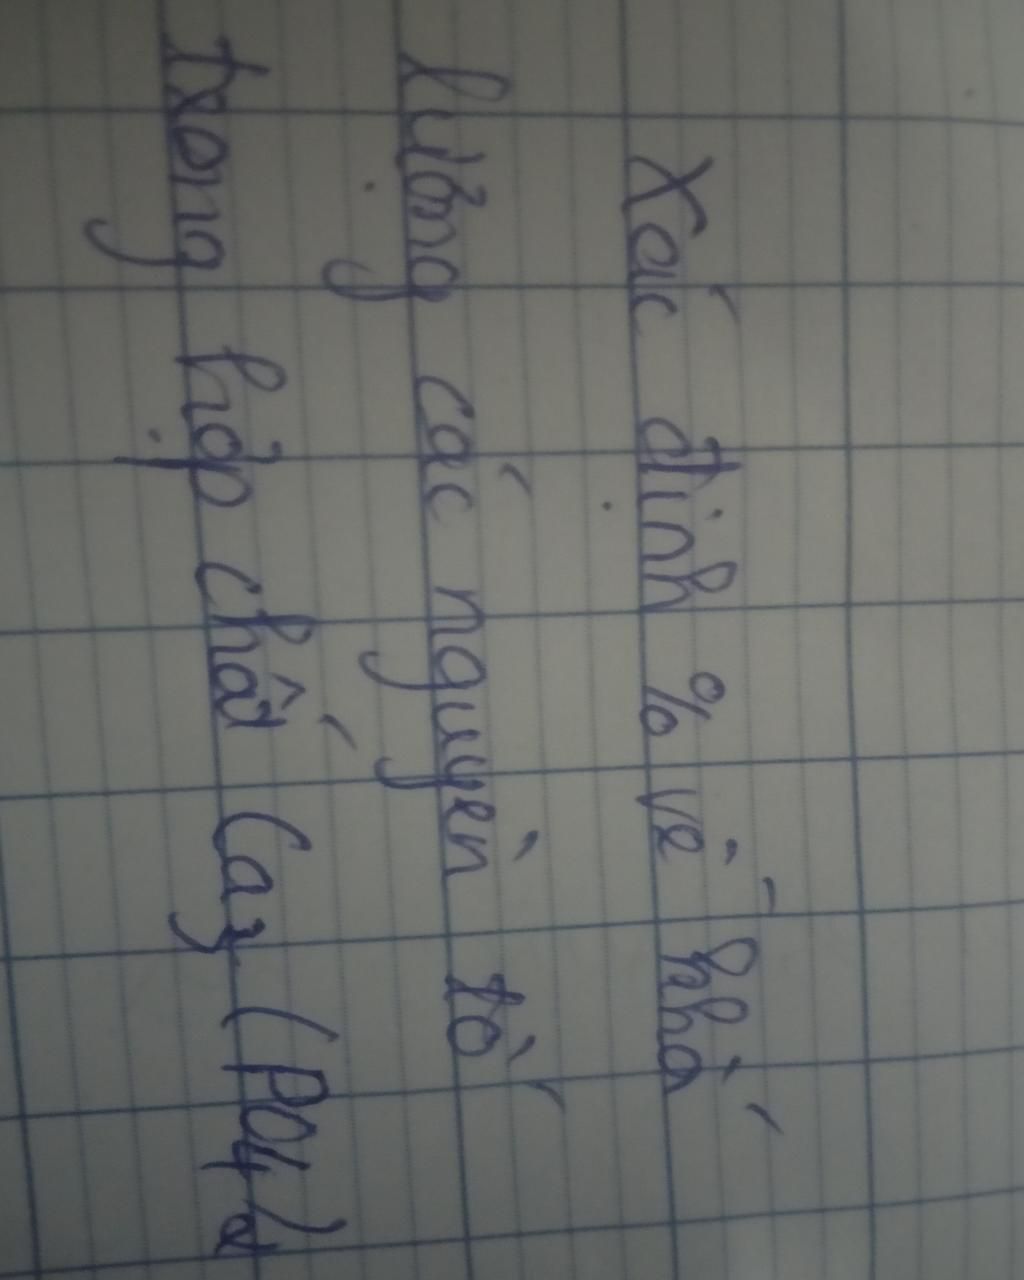 Xác định % về khố
lượng các nguyên tố
trong hợp chất Ca3(PO4)2